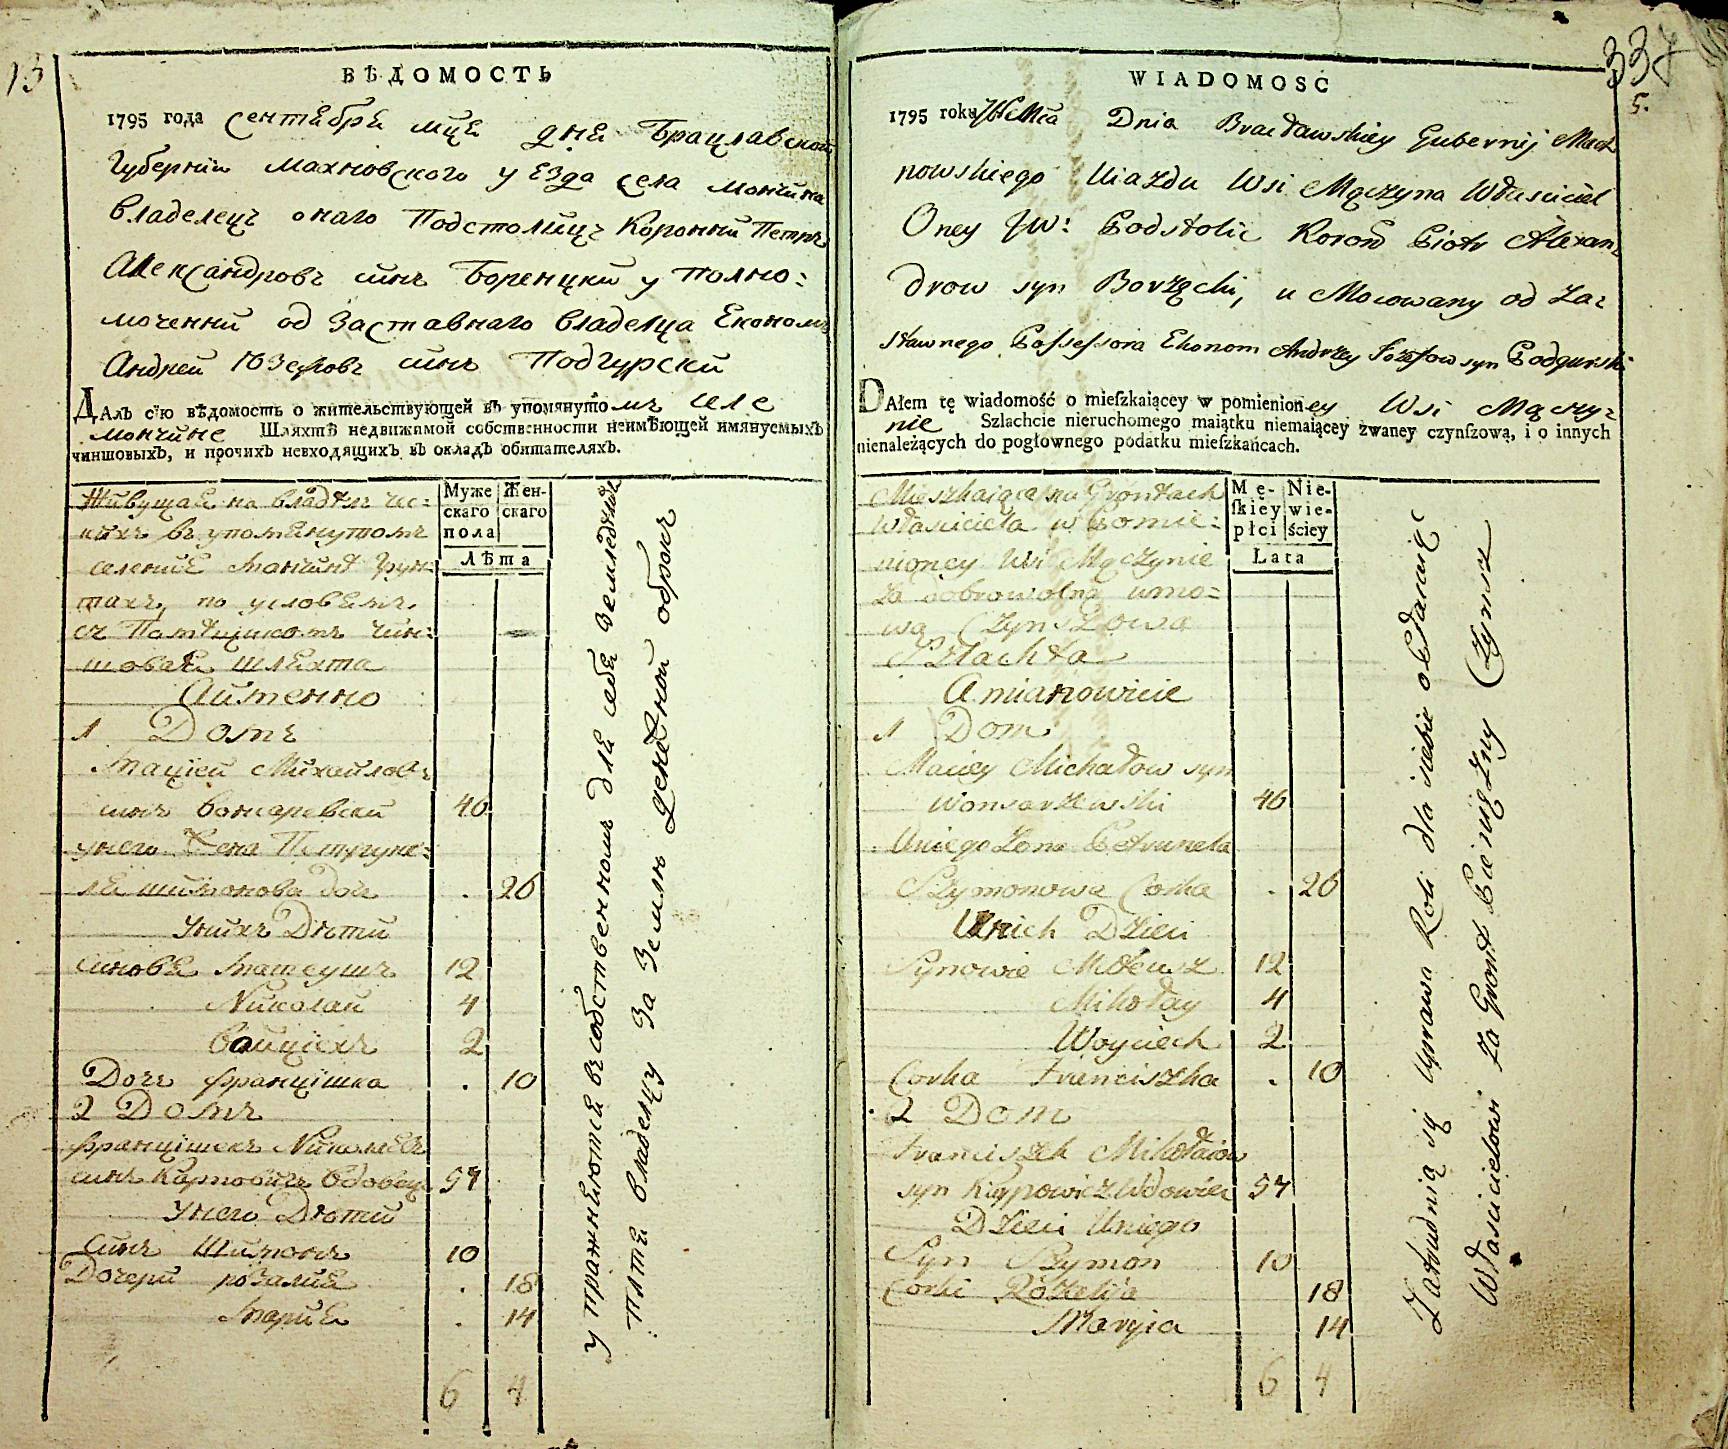 13
ВѢДОМОСТЬ
1795 года сентебре мце дне Брацлавской
Губернии Махновского уезда села Мончина
владелец онаго Подстолиц Коронни Петръ
Александровъ синъ Боренцки у полно:
моченни од заставнаго владелца Економъ
Андрей Юзефовъ синъ Подгурски
ДАлъ сїю вѣдомость о жительствующей въ упомянутомъ селе
Мончине Шляхтѣ недвижимой собственности неимѣющей имянуемыхъ
чиншовыхъ, и прочихъ невходящихъ въ окладъ обитателяхъ.
Муже Жен-
скаго скаго
пола
Лѣта
Живущае на владѣлчес:
кихъ въ упоменутомъ
селении Мончинѣ грун:
тахъ, по условемъ
съ Помѣщикомъ чин:
шовае шлехта
Аименно
1 Домъ
Мацѣей Михайловъ
синъ Вонсаревски 46
унего Жена Петруне:
ле Шимонова доч . 26
Унихъ Дѣти
Синове Матеушъ 12
Николай 4
Войцiехъ 2
Дочь Францiшка . 10
2 Домъ
Францiшекъ Николаевъ
синъ Карповичъ вдовец 54
Унего Дѣти
Синъ Шимонъ 10
Дочери Розалие . 18
Марие . 14
6 4
упражнеютсе въ собственномъ для себе земледелие
плте владелцу за землю денежной оброкъ
337
5.
WIADOMOSC
1795 roku 7bМca Dnia Bracławskiey Gubernij Mach
nowskiego Uiazdu Wsi Mączyna Właściciel
Oney JW: Podstolic Koroń Piotr Alexan:
drow syn Borzęcki, u Mocowany od Za:
stawnego Possessora Ekonom Andrzey Jozefow syn Podgurski
DAłem tę wiadomość o mieſzkaiącey w pomienioney Wsi Mączy:
nie Szlachcie nieruchomego maiątku niemaiącey zwaney czynſzową, i o innych
nienależących do pogłownego podatku mieſzkańcach.
Mę- Nie-
ſkiey wie-
płci ściey
Lata
Mieszkaiąca na Grontach
Własciciela w Pomie:
nioney Wsi Mączynie
za dobrowolną umo=
wą Czynszowa
Szlachta
Amianowicie
1 Dom
Maciey Michałow syn
Wonsarzewski 46
Uniego Zona Petrunela
Szymonowa Corka . 26
Unich Dzieci
Synowie Mateusz 12
Mikołay 4
Woyciech 2
Corka Franciszka . 10
2 Dom
Franciszek Mikołaiow
syn Karpowicz Wdowiec 54
Dzieci Uniego
Syn Szymon 10
Corki Rozalija 18
Maryia 14
6 4
Zatrudnią się Uprawa Roli dla siebie
Własścicielowi za Gront Pieniężny Czynsz